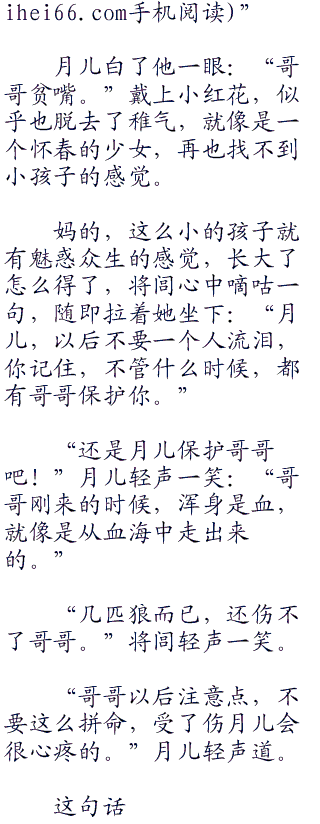 ihei66.com手机阅读)”
月儿白了他一眼：“哥
哥贫嘴。”戴上小红花，似
乎也脱去了稚气，就像是一
个怀春的少女，再也找不到
小孩子的感觉。
妈的，这么小的孩子就
有魅惑众生的感觉，长大了
怎么得了，将闾心中嘀咕一
句，随即拉着她坐下：“月
儿，以后不要一个人流泪，
你记住，不管什么时候，都
有哥哥保护你。”
“还是月儿保护哥哥
吧！”月儿轻声一笑：“哥
哥刚来的时候，浑身是血，
就像是从血海中走出来
的。”
“几匹狼而已，还伤不
了哥哥。”将闾轻声一笑。
“哥哥以后注意点，不
要这么拼命，受了伤月儿会
很心疼的。”月儿轻声道。
这句话